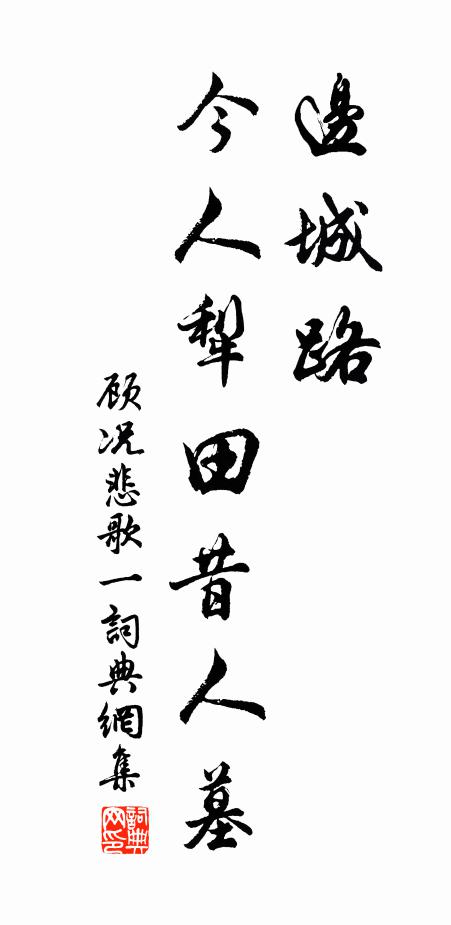 邊城路
今人犁田昔人墓
顾况悲歌一詞典網集
詞典
网印